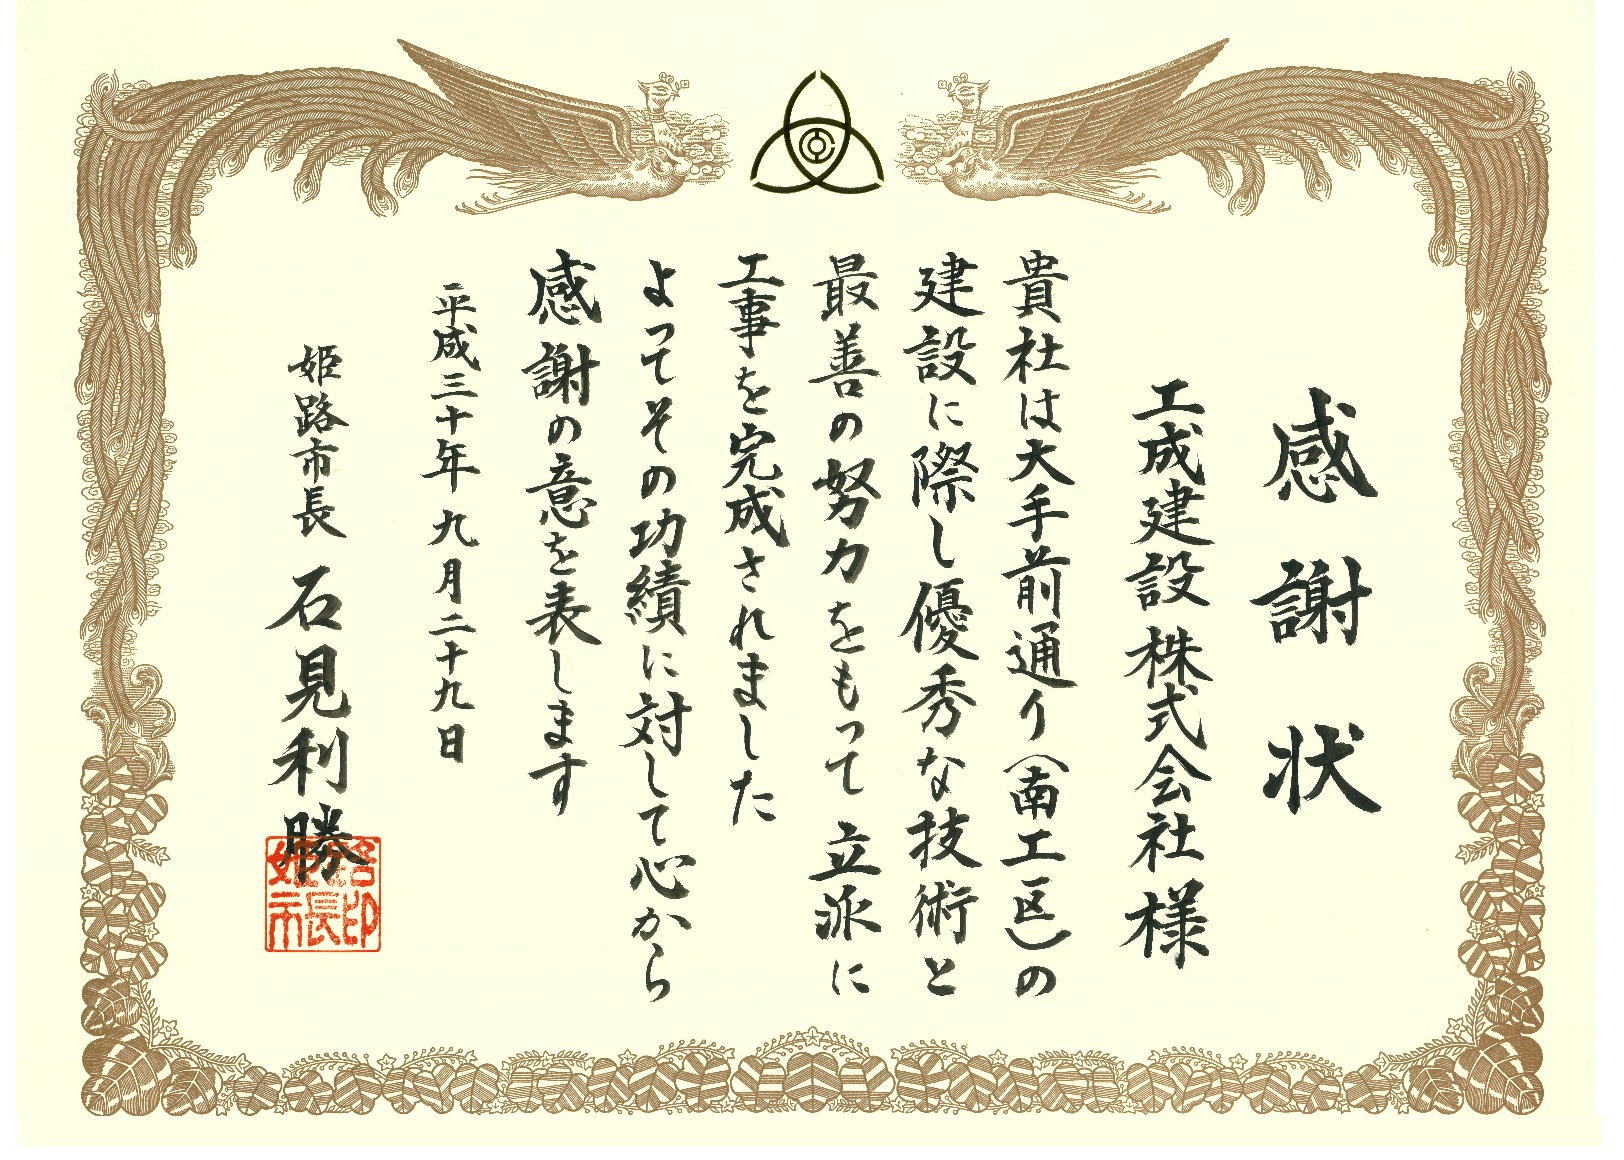 感謝状
工成建設株式会社様
貴社は大手前通り（南工区）の
建設に際し優秀な技術と
最善の努力をもって立派に
工事を完成されました
よってその功績に対して心から
感謝の意を表します
平成三十年九月二十九日
姫路市長 石見利勝
姫路市長印